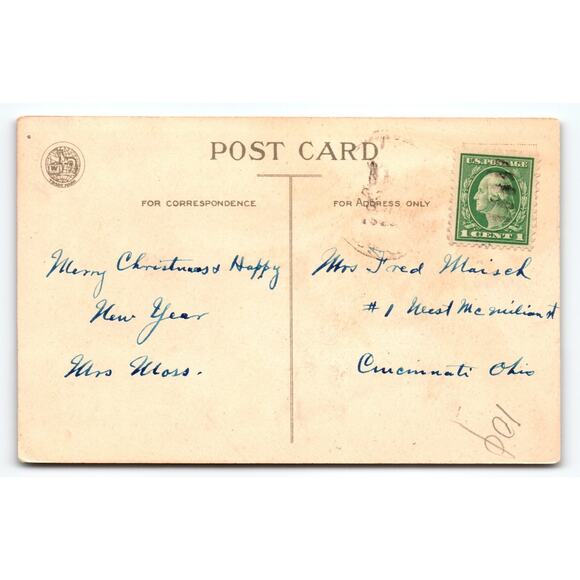 POST CARD
FOR CORRESPONDENCE
FOR ADDRESS ONLY
U.S. POSTAGE
1 CENT 1
Merry Christmas & Happy
New Year
Mrs Moss.
Mrs Fred Maisch
#1 West McMillian st
Cincinnati Ohio